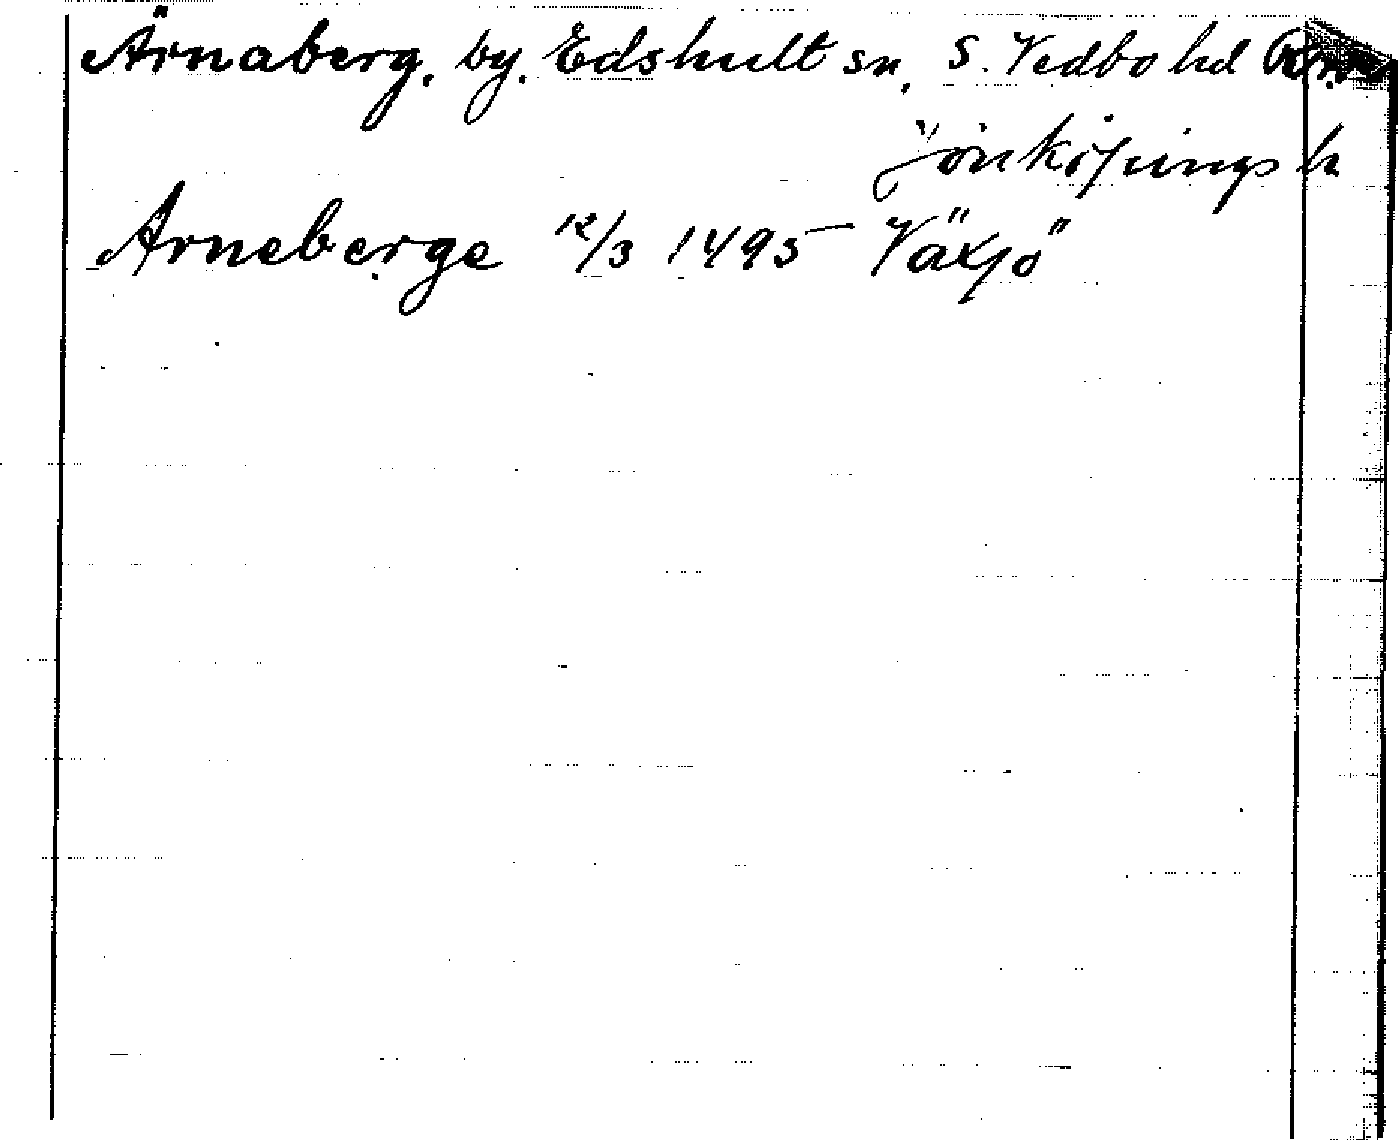 Ärnaberg, by. Edshult sn, S. Vedbo hd
Jönköpings l
Arneberge 12/3 1495 Växjö